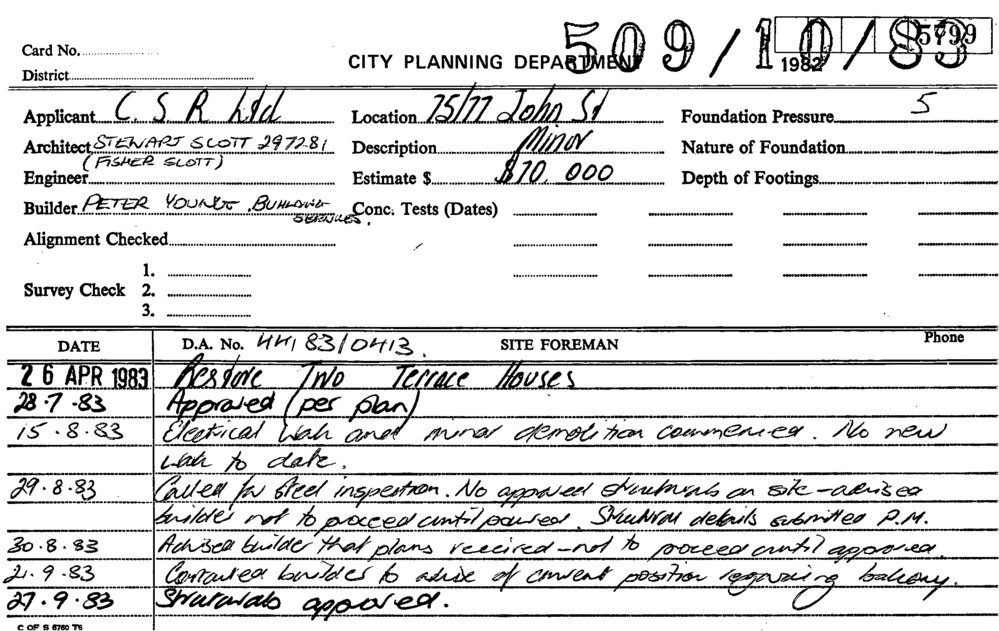 5799
509/10/83
1982
Card No.
CITY PLANNING DEPARTMENT
District
Applicant C. S. R Ltd
Location 75/77 John St
Foundation Pressure 5
Architect STEWART SCOTT 297281
(FISHER SCOTT)
Description Minor
Nature of Foundation
Engineer
Estimate $ $70,000
Depth of Footings
Builder PETER YOUNG BUILDING SERVICES.
Conc. Tests (Dates)
Alignment Checked
1.
Survey Check 2.
3.
DATE
D.A. No. 44/83/0413.
SITE FOREMAN
Phone
26 APR 1983 Restore Two Terrace Houses
28.7.83 Approved (per plan)
15.8.83 Electrical work and minor demolition commenced. No new
work to date.
29.8.83 Called for steel inspection. No approved structurals on site - advised
builder not to proceed until poured. Structural details submitted P.M.
30.8.83 Advised builder that plans received - not to proceed until approved.
21.9.83 Contacted builders to advise of current position regarding balcony.
27.9.83 Structurals approved.
C OF S 6760 T6